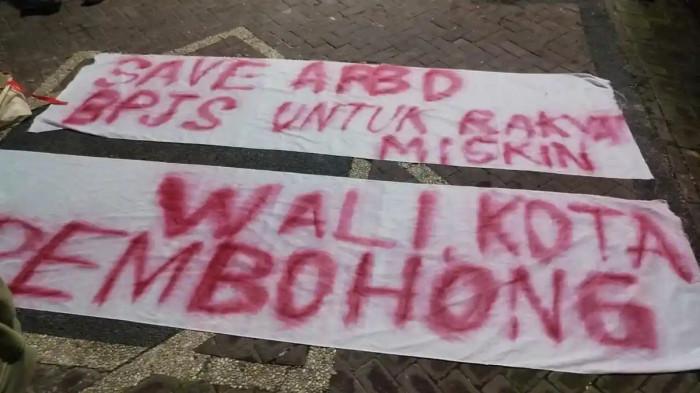 SAVE APBD
BPJS UNTUK RAKYAT
MISKIN
WALI KOTA
PEMBOHONG